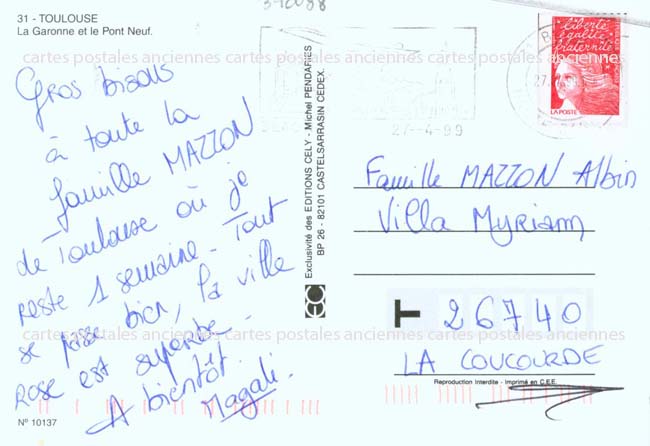 31 - TOULOUSE
La Garonne et le Pont Neuf.
Gros bisous
à toute la
famille MAZZON
de Toulouse où je
reste 1 semaine - Tout
se passe bien, la ville
Rose est superbe -
A bientôt
Magali
Nº 10137
Exclusivité des EDITIONS CELY - Michel PENDARIES
BP 26 - 82101 CASTELSARRASIN CEDEX.
27-4-99
27.
liberté
égalité
fraternité
LA POSTE
Famille MAZZON Albin
Villa Myriam
T 26740
LA COUCOURDE
Reproduction Interdite - Imprimé en C.E.E.
cartes postales anciennes cartes postales anciennes cartes postales anciennes
cartes postales anciennes cartes postales anciennes cartes postales anciennes